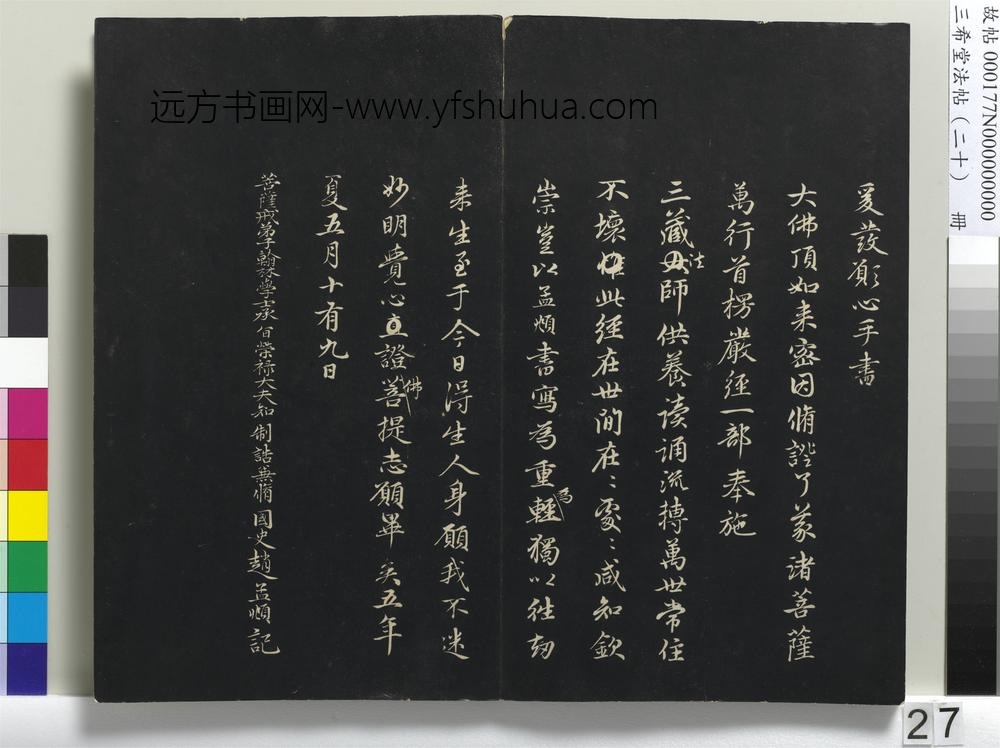 爰發願心手書
大佛頂如来密因脩證了義諸菩薩
萬行首楞嚴徑一部奉施
三藏法師供養读誦流摶萬世常住
不壞惟此經在世间在〻處〻咸知欽
崇豈以孟頫書寫為重為輕獨以徃劫
来生至于今日得生人身願我不迷
妙明覺心直證佛菩提志願畢矣五年
夏五月十有九日
菩薩戒弟子翰林學士承旨榮禄大夫知制誥兼脩國史趙孟頫記
远方书画网-www.yfshuhua.com
故帖 000177N000000000
三希堂法帖（二十） 册
27